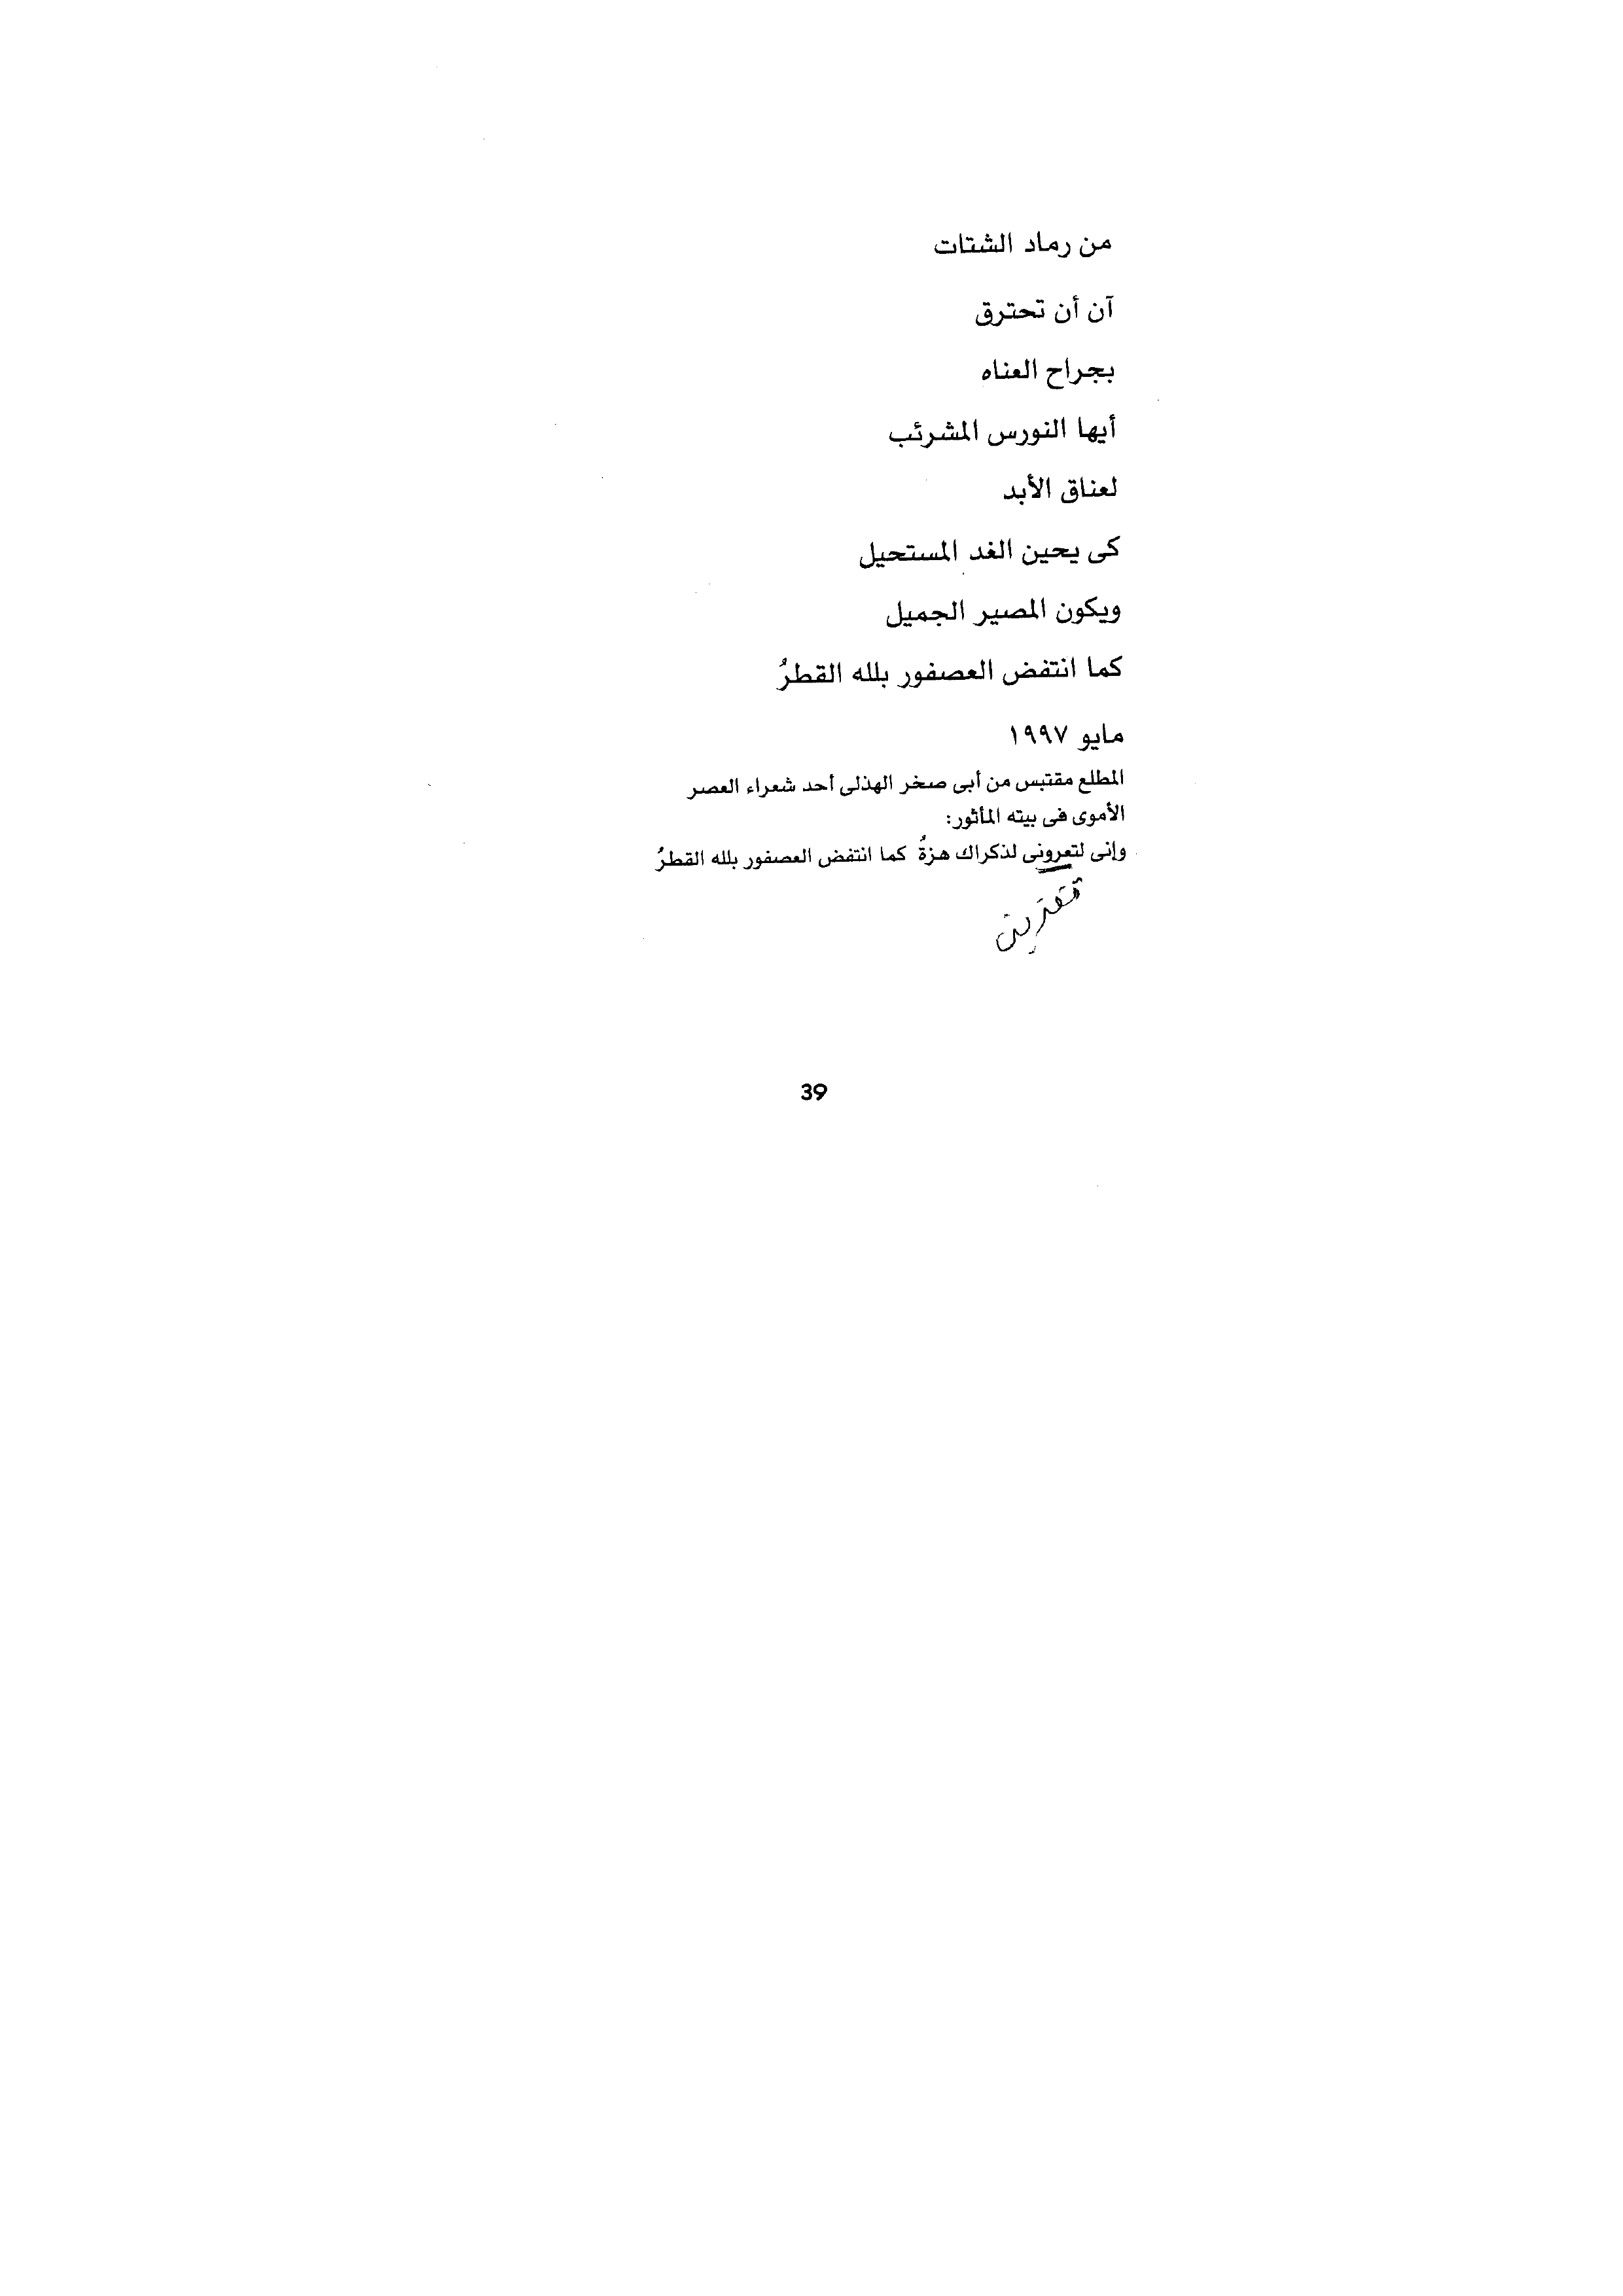 من رماد الشتات
آن أن تحترق
بجراح العناه
أيها النورس المشرئب
لعناق الأبد
كى يحين الغد المستحيل
ويكون المصير الجميل
كما انتفض العصفور بلله القطرُ
مايو ١٩٩٧
المطلع مقتبس من أبى صخر الهذلى أحد شعراء العصر
الأموى فى بيته المأثور:
وإنى لتعرونى لذكراك هزةُ كما انتفض العصفور بلله القطرُ
تعترينى
39